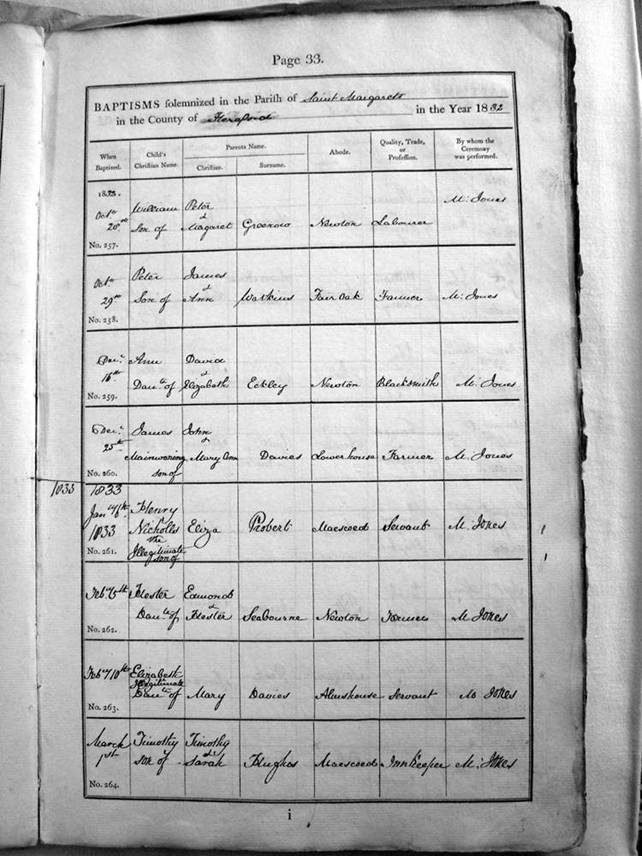 Page 33.
BAPTISMS solemnized in the Parish of Saint Margarets
in the County of Hereford in the Year 1832
When Baptized. Child's Christian Name. Parents Name. Christian. Surname. Abode. Quality, Trade, or Profession. By whom the Ceremony was performed.
1832. William Peter M. Jones
Octr &
28th Son of Magaret Greenow Newton Labourer
No. 257.
Octr Peter James
29th Son of & Ann Watkins Fair Oak Farmer M. Jones
No. 258.
Decr. Ann David
16th Daur. of & Elizabeth Eckley Newton Blacksmith M. Jones
No. 259.
Decr. James John
25th Mainwaring & Mary Ann Davies Lowerhouse Farmer M. Jones
No. 260. Son of
1833 1833
Jany 6th Henry
1833 Nicholls Eliza Probert Maescoed Servant M. Jones
the
No. 261. Illegitimate son of
Feby 6th Hester Edmond
Daur. of & Hester Seabourne Newton Farmer M. Jones
No. 262.
Feby 10th Elizabeth
Illegitimate
Daur. of Mary Davies Almshouse Servant M. Jones
No. 263.
March Timothy Timothy
1st Son of & Sarah Hughes Maescoed Inn Keeper M. Jones
No. 264.
i